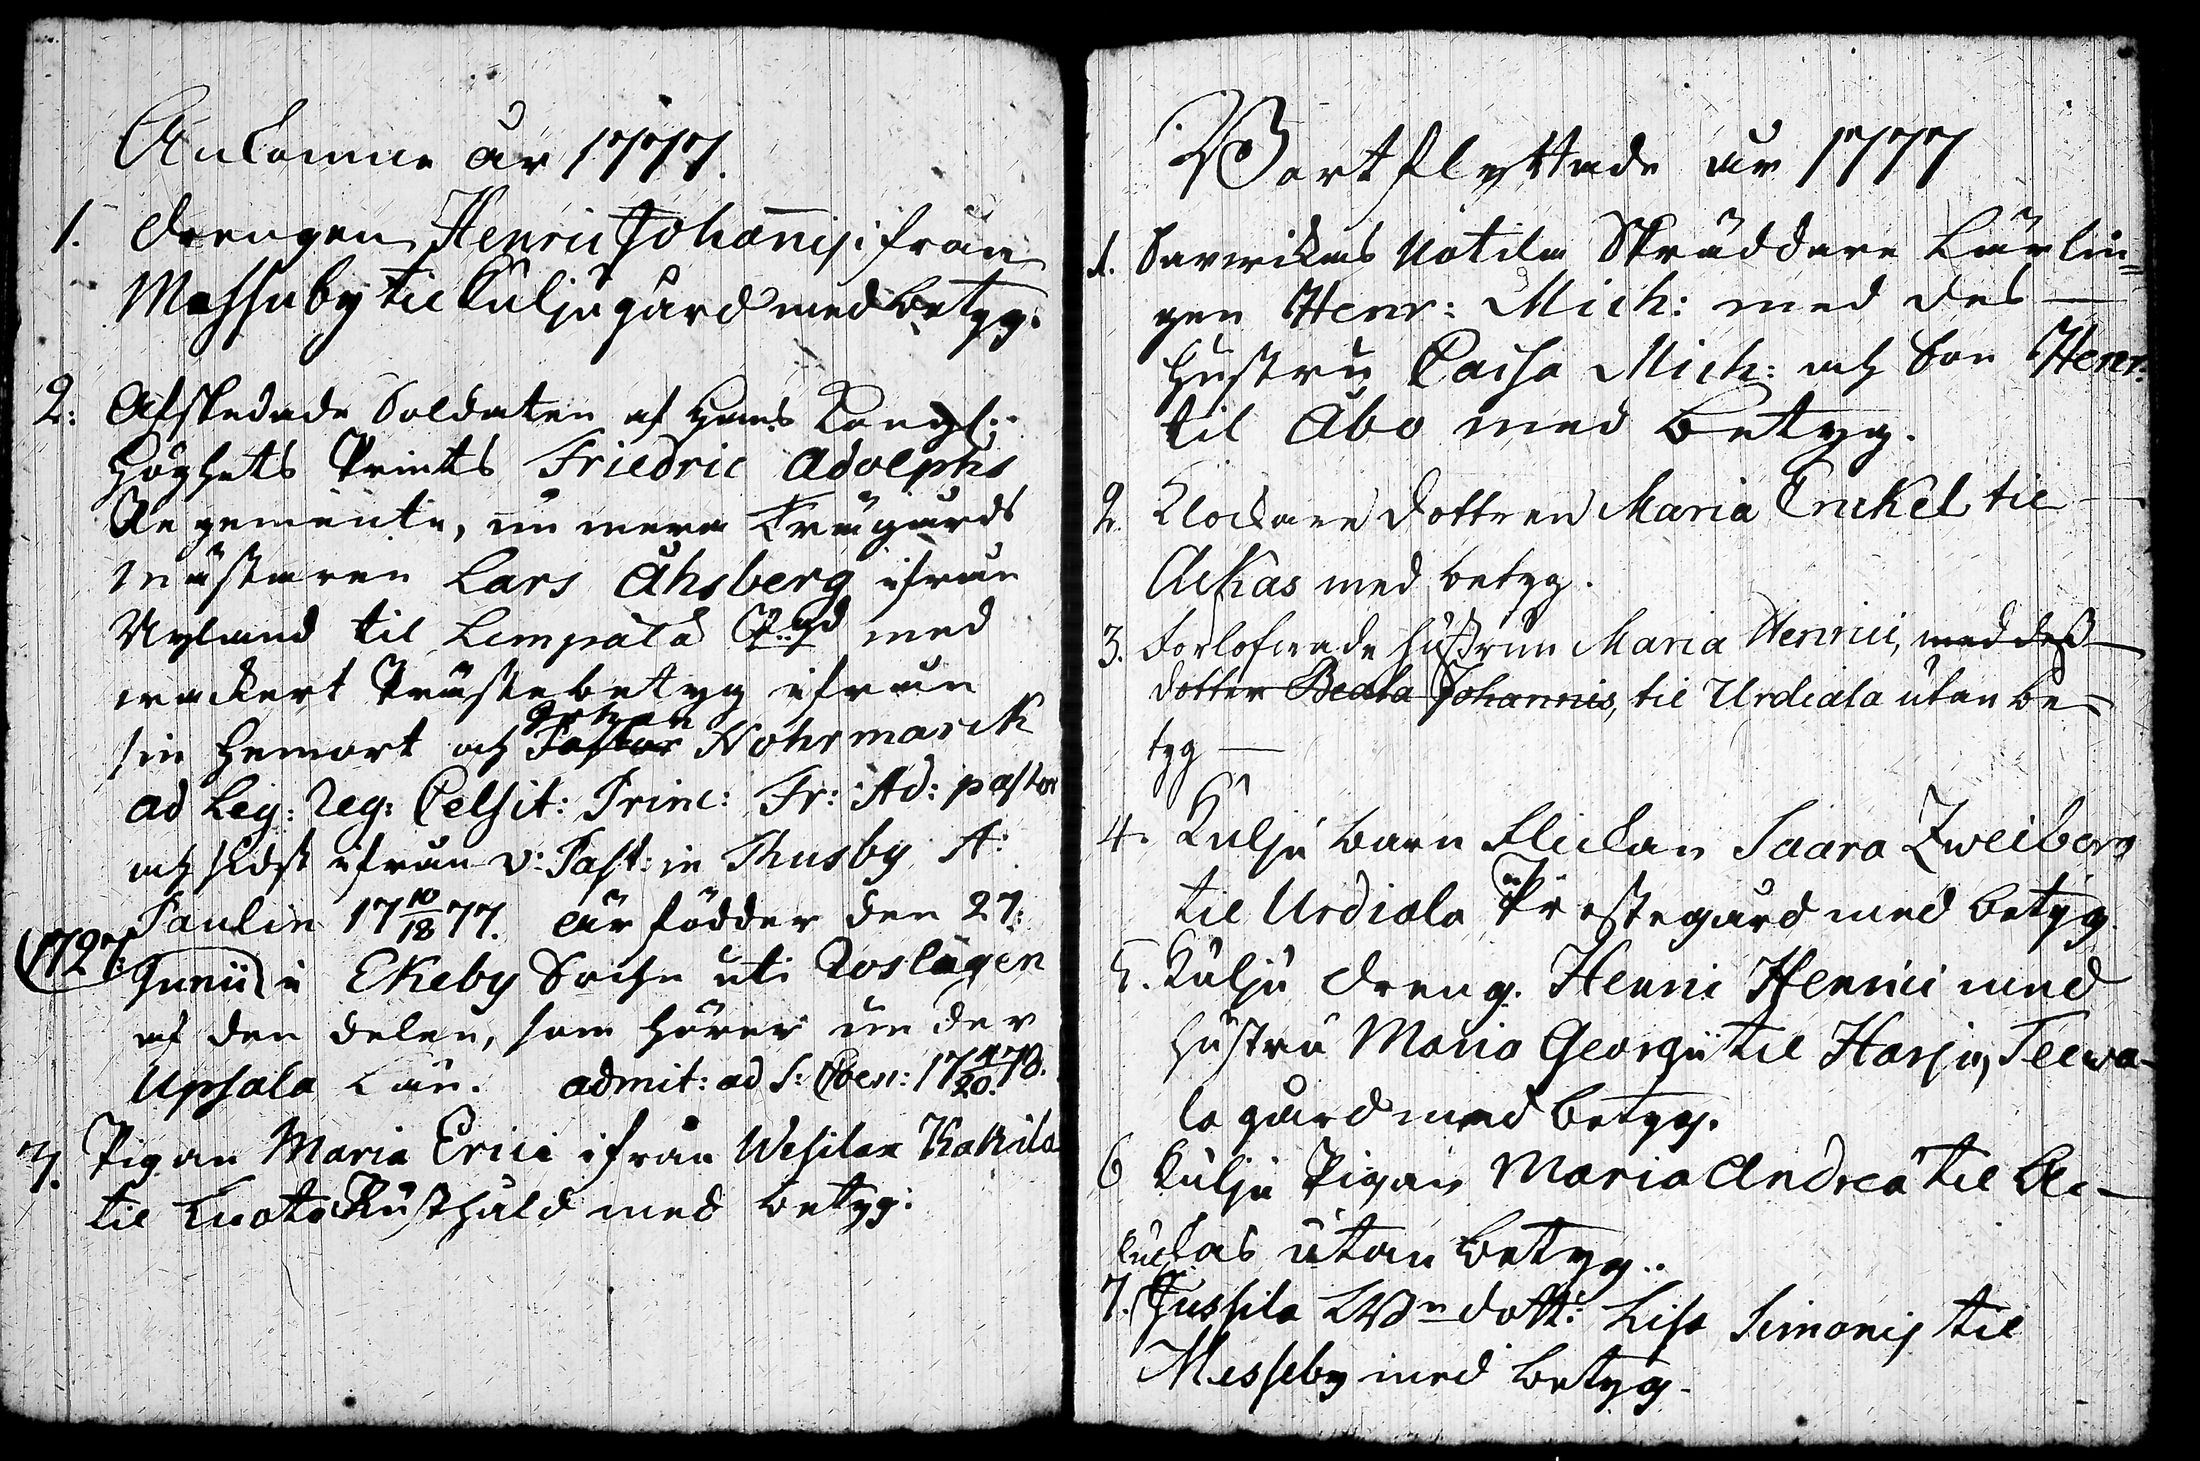 Ankomne år 1777.
1. Drengen Henric Johannis: ifrån
Massuby til Kulju gård med betyg.
2: Afskedade Soldaten af Hans Kongl:
Höghets Prints Friedric Adolphs
Regemente, nu mera Trägårds
mästaren Lars Åhsberg ifrån
Nyland til Lempälä med
wackert Prästebetyg ifrån
sin hemort och Pastor Nohrmarck
ad Leg: Reg: Celsit: Princ: Fr: Ad: pastor
och sidst ifrån v: Past: in Thusby A:
Paulin 17 10/18 77. är födder den 27:
(1727: Junii) i Ekeby Sochn uti Roslagen
af den delen, som hörer under
Upsala Län. admit: ad S: Coen: 17 4/20. 78.
3. Pigan Maria Erici ifrån Wesilax Kakila
til Kuota Rusthåld med betyg:
Bortflyttade år 1777
1. Sawickas Uotila Skräddare Lärlin=
gen Henr: Mich: med des
hustru Caisa Mich: och Son Henr:
til Åbo med betyg.
2. Klockare dottren Maria Enckel til
Ackas med betyg.
3. Förlofwade hustrun Maria Henrici, med deß
dotter Beata Johannis, til Urdiala utan be=
tyg
4. Kulju barn flickan Saara Zweiberg
til Urdiala Prästegård med betyg.
5. Kulju dreng. Henric Henrici med
hustru Maria Georgii til Harju, Teewa-
la gård med betyg.
6 Kulju Pigan Maria Andreæ til
utan betyg..
7. Jussila dott: Lisa Simonis til
Messuby med betyg.